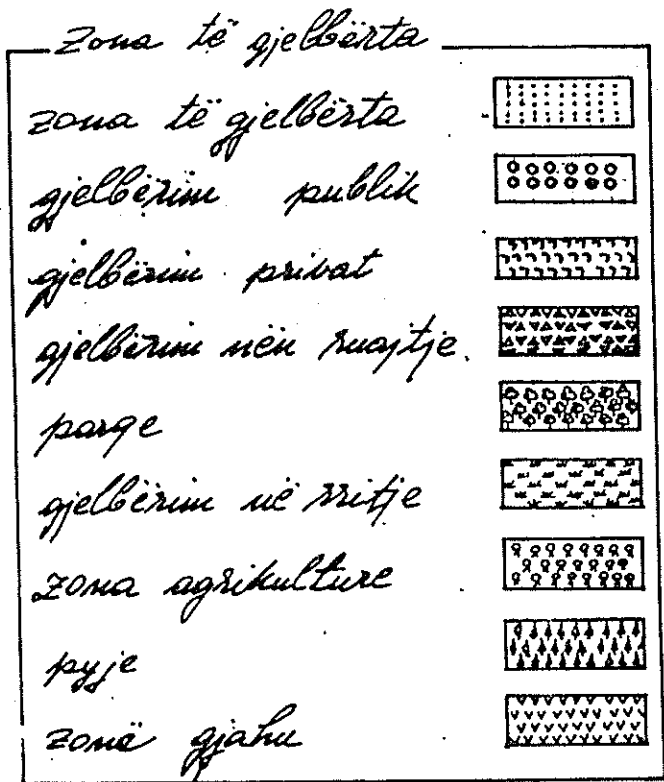 Zona të gjelbërta
zona të gjelbërta
gjelbërim publik
gjelbërim privat
gjelbërim nën ruajtje.
parqe
gjelbërim në rritje
zona agrikulture
pyje
zonë gjahu